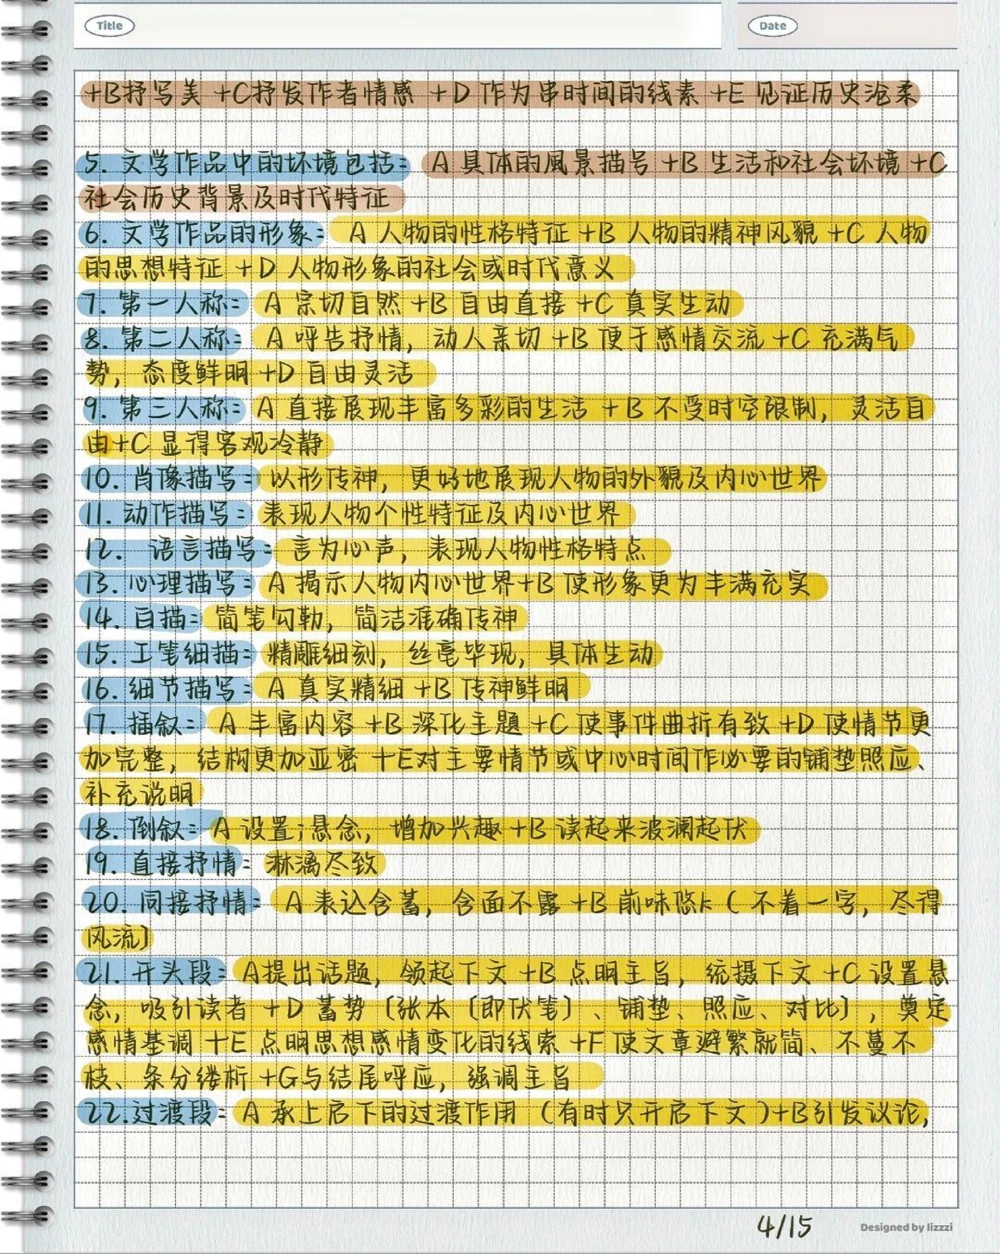 Title
Date
+B抒写美 +C抒发作者情感 +D 作为串时间的线索 +E 见证历史沧柔
5. 文学作品中的环境包括: A 具体的風景描写 +B 生活和社会环境 +C
社会历史背景及时代特征
6. 文学作品的形象: A 人物的性格特征 +B 人物的精神风貌 +C 人物
的思想特征 +D 人物形象的社会或时代意义
7. 第一人称: A 亲切自然 +B 自由直接 +C 真实生动
8. 第二人称: A 呼告抒情, 动人亲切 +B 便于感情交流 +C 充满气
势, 态度鲜明 +D 自由灵活
9. 第三人称: A 直接展现丰富多彩的生活 +B 不受时空限制, 灵活自
由+C 显得客观冷静
10. 肖像描写: 以形传神, 更好地展现人物的外貌及内心世界
11. 动作描写: 表现人物个性特征及内心世界
12. 语言描写: 言为心声, 表现人物性格特点
13. 心理描写: A 揭示人物内心世界+B 使形象更为丰满充实
14. 白描: 简笔勾勒, 简洁准确传神
15. 工笔细描: 精雕细刻, 丝毫毕现, 具体生动
16. 细节描写: A 真实精细 +B 传神鲜明
17. 插叙: A 丰富内容 +B 深化主题 +C 使事件曲折有致 +D 使情节更
加完整, 结构更加严密 +E对主要情节或中心时间作必要的铺垫照应、
补充说明
18. 倒叙: A 设置悬念, 增加兴趣 +B 读起来波澜起伏
19. 直接抒情: 淋漓尽致
20. 间接抒情: A 表达含蓄, 含而不露 +B 韵味悠长 (不着一字, 尽得
风流)
21. 开头段: A提出话题, 领起下文 +B 点明主旨, 统摄下文 +C 设置悬
念, 吸引读者 +D 蓄势 (张本 (即伏笔)、铺垫、照应、对比), 奠定
感情基调 +E 点明思想感情变化的线索 +F 使文章避繁就简、不蔓不
枝、条分缕析 +G与结尾呼应, 强调主旨
22.过渡段: A 承上启下的过渡作用 (有时只开启下文)+B引发议论,
4/15
Designed by lizzzi